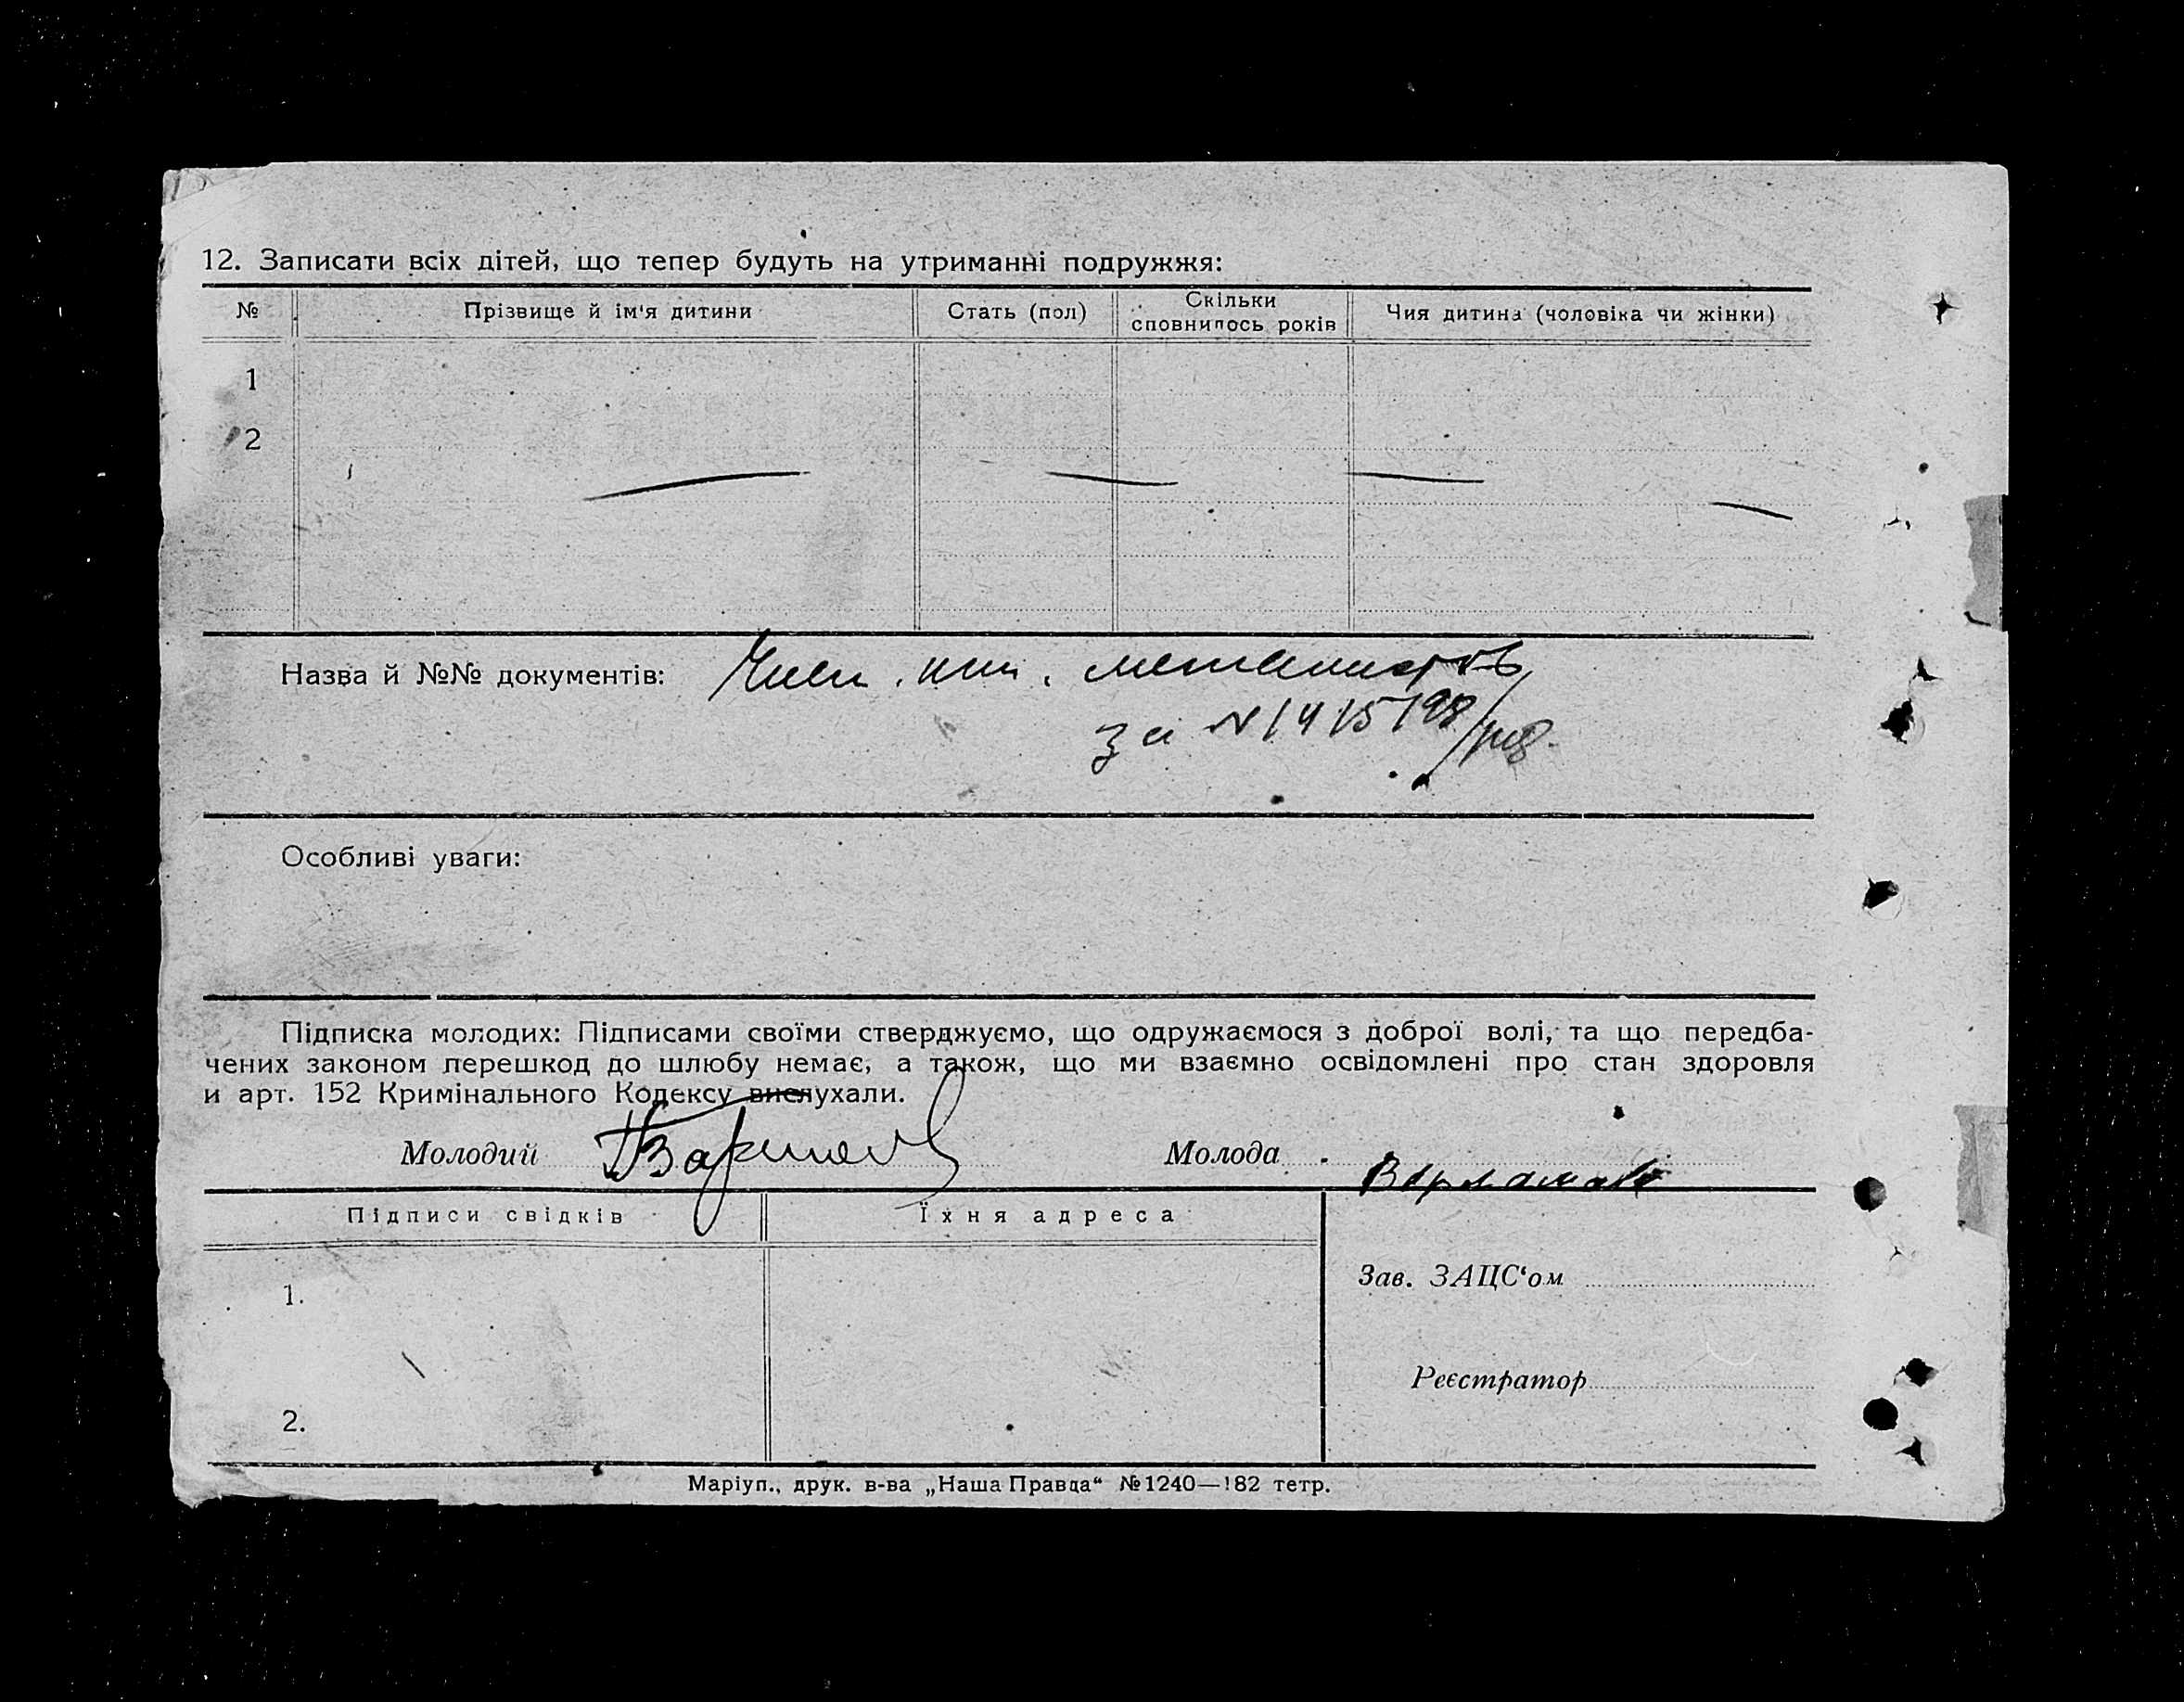 12. Записати всіх дітей, що тепер будуть на утриманні подружжя:
№ Прізвище й ім'я дитини Стать (пол) Скільки сповнилось років Чия дитина (чоловіка чи жінки)
1
2
Назва й №№ документів:
за №
Особливі уваги:
Підписка молодих: Підписами своїми стверджуємо, що одружаємося з доброї волі, та що передба-
чених законом перешкод до шлюбу немає, а також, що ми взаємно освідомлені про стан здоровля
и арт. 152 Кримінального Кодексу вислухали.
Молодий Молода
Підписи свідків Їхня адреса
Зав. ЗАЦС'ом
1.
Реєстратор
2.
Маріуп., друк. в-ва „Наша Правда“ №1240—182 тетр.